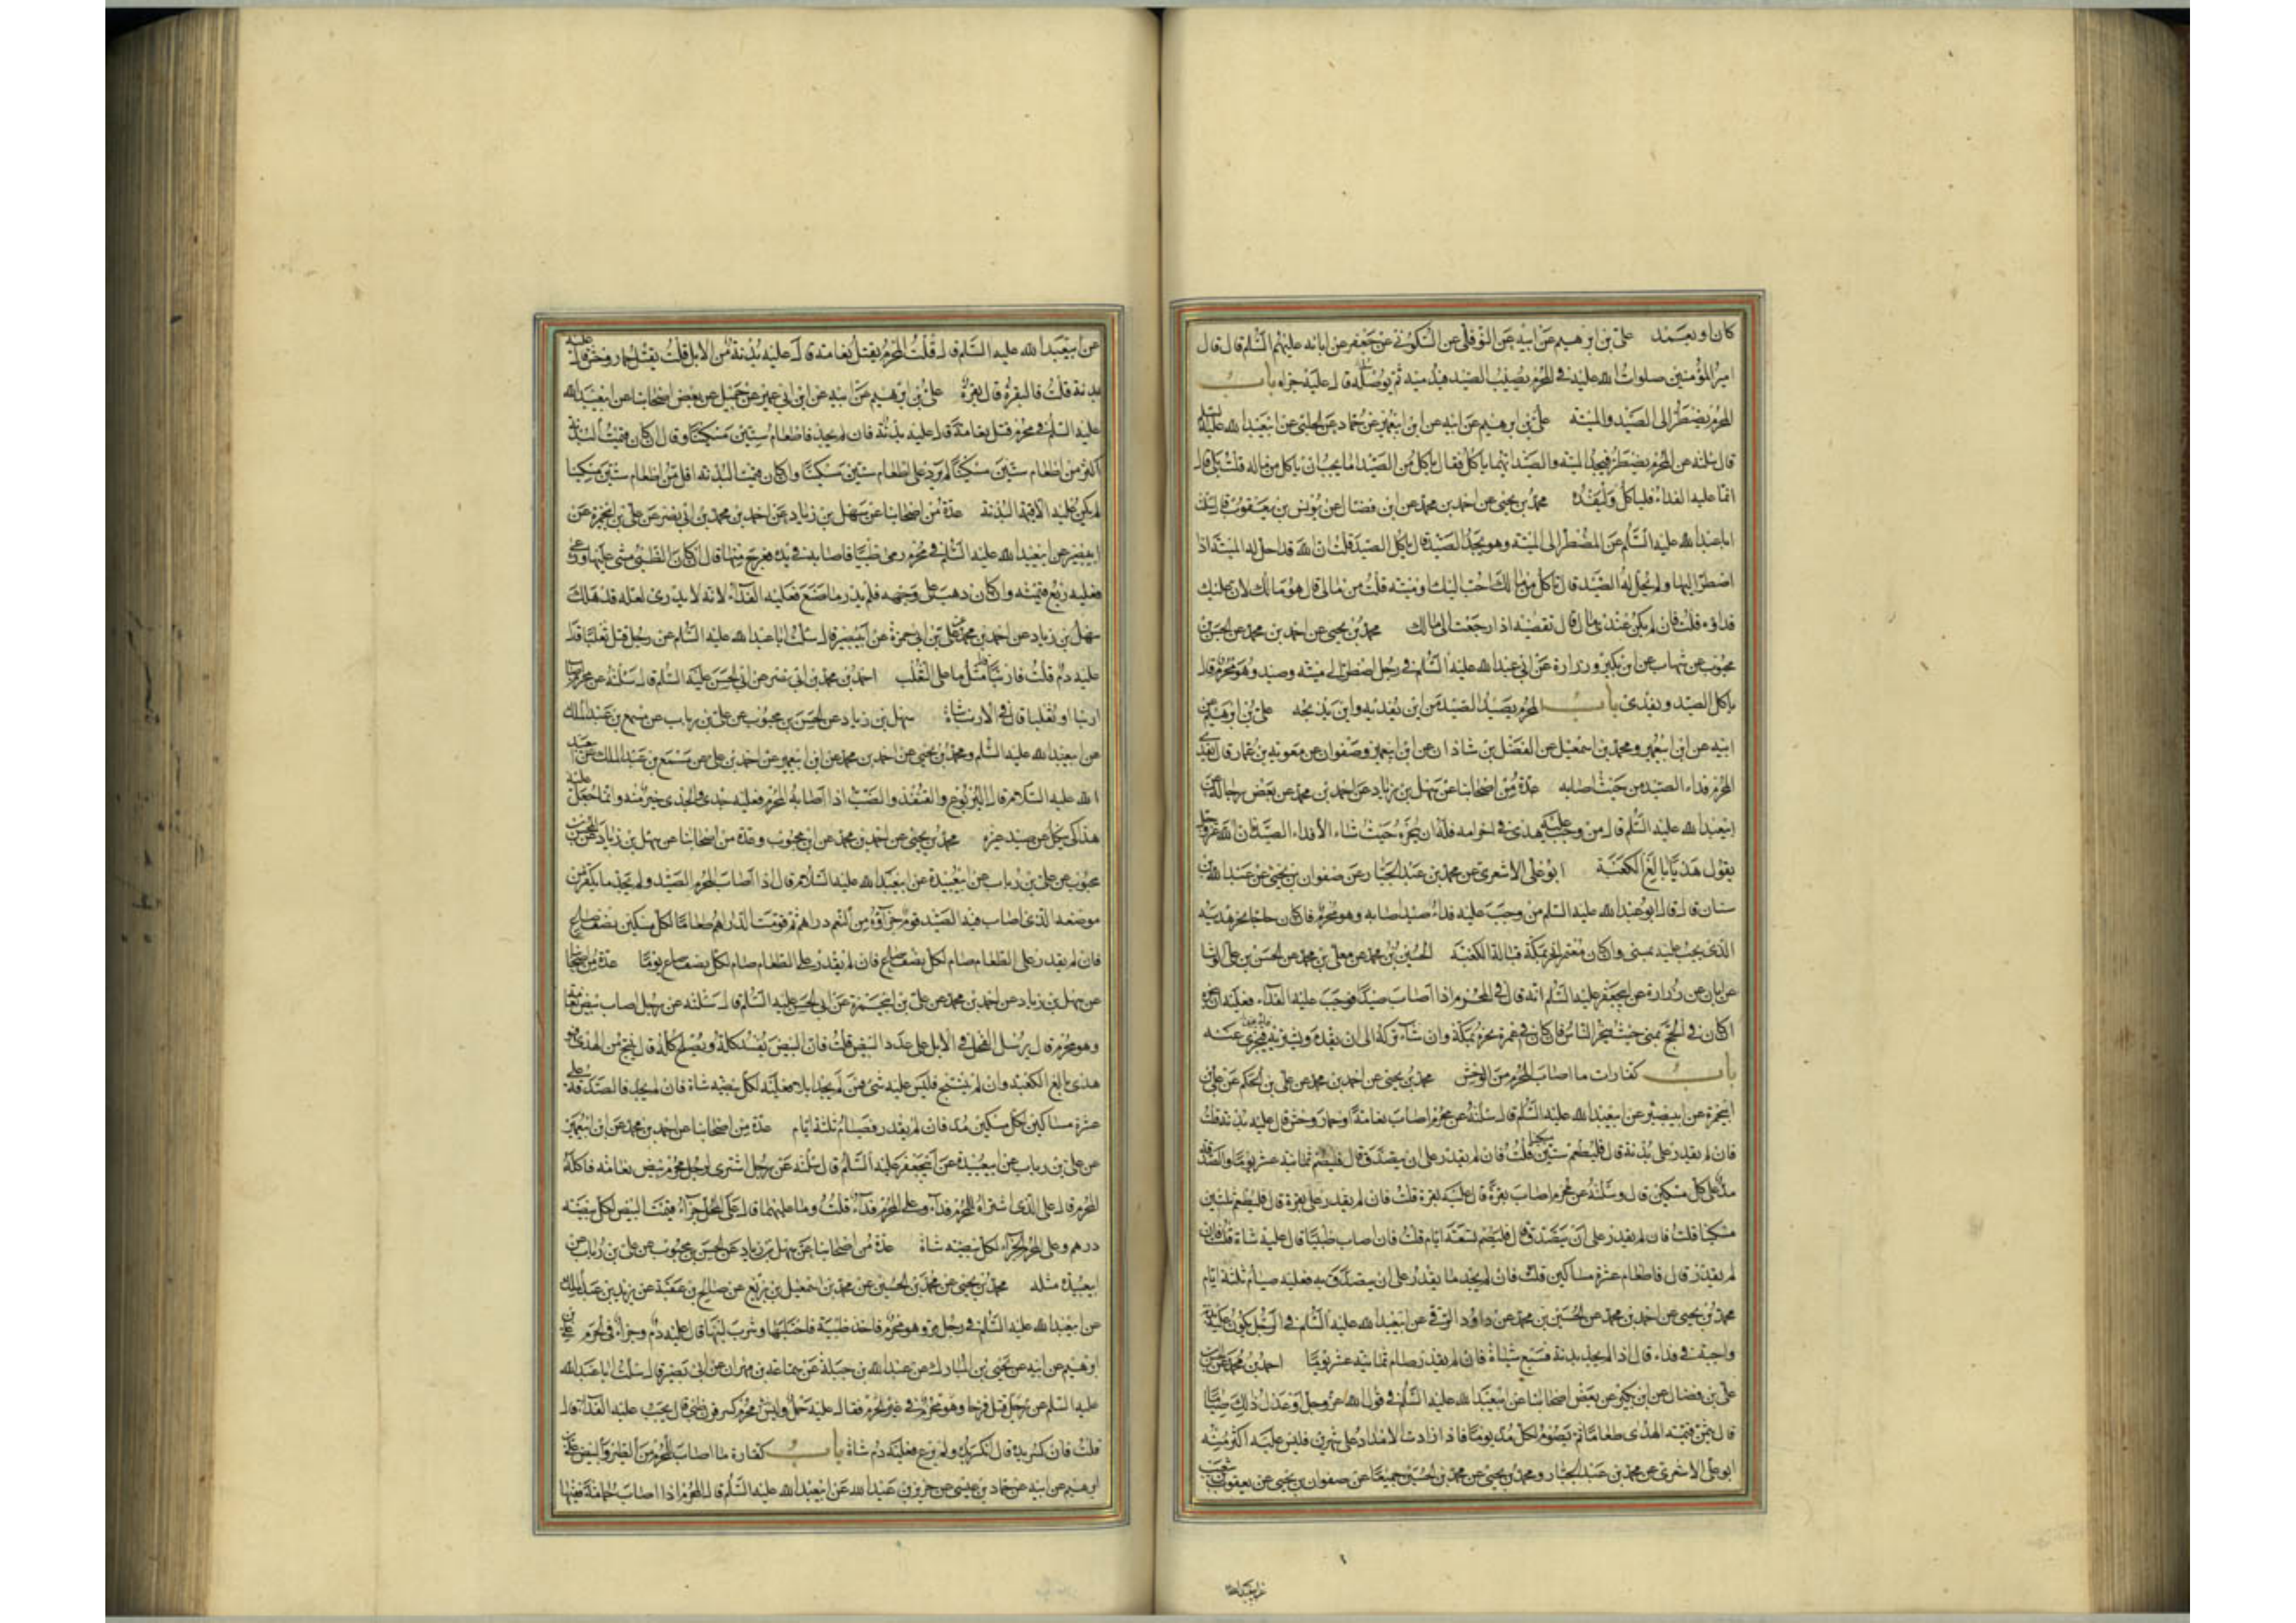 كان او بعمد علي بن ابرهيم عن ابيه عن النوفلي عن السكوني عن جعفر عن ابائه عليهم السلم قال قال
امير المؤمنين صلوات الله عليه في المحرم يصيب الصيد فيدميه ثم يرسله قال عليه جزاه باب
المحرم يضطر الى الصيد والميتة علي بن ابرهيم عن ابيه عن ابن ابيعمير عن حماد عن الحلبي عن ابيعبد الله عليه السلم
قال سئلته عن المحرم يضطر فيجد الميتة والصيد ايهما ياكل فقال ياكل من الصيد اما يحب ان ياكل من ماله قلت بلى قال
انما عليه الفداء فلياكل وليفده محمد بن يحيى عن احمد بن محمد عن ابن فضال عن يونس بن يعقوب قال سئلت
اباعبد الله عليه السلم عن المضطر الى الميتة وهو يجد الصيد قال ياكل الصيد قلت ان الله قد احل له الميتة اذا
اضطر اليها ولم يحل له الصيد قال تاكل من مالك احب اليك او ميتة قلت من مالي قال هو مالك لان عليك
فداؤه قلت فان لم يكن عندي مال قال تقضيه اذا رجعت الى مالك محمد بن يحيى عن احمد بن محمد عن الحسن بن
محبوب عن شهاب عن ابن بكير وزرارة عن ابي عبد الله عليه السلم في رجل اضطر الى ميتة وصيد وهو محرم قال
ياكل الصيد ويفدى باب المحرم يصيد الصيد من اين يفديه واين يذبحه علي بن ابرهيم عن
ابيه عن ابن ابيعمير ومحمد بن اسمعيل عن الفضل بن شاذان عن ابن ابيعمير وصفوان عن معوية بن عمار قال يفدي
المحرم فداء الصيد من حيث اصابه عدة من اصحابنا عن سهل بن زياد عن احمد بن محمد عن بعض رجاله عن
ابيعبد الله عليه السلم قال من وجب عليه هدي في احرامه فله ان ينحره حيث شاء الا فداء الصيد فان الله عز وجل
يقول هديا بالغ الكعبة ابو علي الاشعري عن محمد بن عبد الجبار عن صفوان بن يحيى عن عبد الله بن
سنان قال قال ابو عبد الله عليه السلم من وجب عليه فداء صيد اصابه وهو محرم فان كان حاجا نحر هديه
الذي يجب عليه بمنى وان كان معتمرا نحر بمكة قبالة الكعبة الحسين بن محمد عن معلى بن محمد عن الحسن بن علي الوشا
عن ابان عن زرارة عن ابيجعفر عليه السلم انه قال في المحرم اذا اصاب صيدا فوجب عليه الفداء فعليه ان ينحره
ان كان في الحج بمنى حيث ينحر الناس فان كان في عمرة نحره بمكة وان شاء تركه الى ان يقدم ويشتريه فيجزي عنه
باب كفارات ما اصاب المحرم من الوحش محمد بن يحيى عن احمد بن محمد عن علي بن الحكم عن علي بن
ابيحمزة عن ابيبصير عن ابيعبد الله عليه السلم قال سئلته عن محرم اصاب نعامة او حمار وحش قال عليه بدنة قلت
فان لم يقدر على بدنة قال فليطعم ستين مسكينا قلت فان لم يقدر على ان يتصدق قال فليصم ثمانية عشر يوما والصدقة
مد على كل مسكين قال وسئلته عن محرم اصاب بقرة قال عليه بقرة قلت فان لم يقدر على بقرة قال فليطعم ثلثين
مسكينا قلت فان لم يقدر على ان يتصدق قال فليصم تسعة ايام قلت فان اصاب ظبيا قال عليه شاة قلت فان
لم يقدر قال فاطعام عشرة مساكين قلت فان لم يجد ما يقدر على ان يتصدق به فعليه صيام ثلثة ايام
محمد بن يحيى عن احمد بن محمد عن الحسين بن محمد عن داود الرقي عن ابيعبد الله عليه السلم في الرجل يكون عليه بدنة
واجبة في فداء قال اذا لم يجد بدنة فسبع شياة فان لم يقدر صام ثمانية عشر يوما احمد بن محمد عن الحسن بن
علي بن فضال عن ابن بكير عن بعض اصحابنا عن ابيعبد الله عليه السلم في قول الله عز وجل او عدل ذلك صياما
قال يثمن قيمة الهدى طعاما ثم يصوم لكل مد يوما فاذا زادت الامداد على شهرين فليس عليه اكثر منه
ابو علي الاشعري عن محمد بن عبد الجبار ومحمد بن يحيى عن محمد بن الحسين جميعا عن صفوان بن يحيى عن يعقوب بن شعيب
عن ابيعبد الله
عن ابيعبد الله عليه السلم قال قلت المحرم يقتل نعامة قال عليه بدنة من الابل قلت يقتل حمار وحش قال عليه
بدنة قلت فالبقرة قال بقرة علي بن ابرهيم عن ابيه عن ابن ابي عمير عن جميل عن بعض اصحابنا عن ابيعبد الله
عليه السلم في محرم قتل نعامة قال عليه بدنة فان لم يجد فاطعام ستين مسكينا وقال ان كان قيمة البدنة
اكثر من اطعام ستين مسكينا لم يزد على اطعام ستين مسكينا وان كان قيمة البدنة اقل من اطعام ستين مسكينا
لم يكن عليه الا قيمة البدنة عدة من اصحابنا عن سهل بن زياد عن احمد بن محمد بن ابي نصر عن علي بن ابيحمزة عن
ابيبصير عن ابيعبد الله عليه السلم في محرم رمى ظبيا فاصابه في يده فعرج منها قال ان كان الظبي مشى عليها ورعى
فعليه ربع قيمته وان كان ذهب على وجهه فلم يدر ما صنع فعليه الفداء لانه لا يدري لعله قد هلك
سهل بن زياد عن احمد بن محمد عن علي بن ابي حمزة عن ابيبصير قال سئلت اباعبد الله عليه السلم عن رجل قتل ثعلبا قال
عليه دم قلت فارنبا قال مثل ما على الثعلب احمد بن محمد بن ابي نصر عن ابي الحسن عليه السلم قال سئلته عن محرم اصاب
ارنبا او ثعلبا قال في الارنب شاة سهل بن زياد عن الحسن بن محبوب عن علي بن رياب عن مسمع بن عبد الملك
عن ابيعبد الله عليه السلم ومحمد بن يحيى عن احمد بن محمد عن ابن ابيعمير عن احمد بن علي عن مسمع بن عبد الملك عن ابيعبد
الله عليه السلام قال اليربوع والقنفذ والضب اذا اصابه المحرم فعليه جدي والجدي خير منه وانما جعل عليه
هذا كي ينكل عن صيد غيره محمد بن يحيى عن احمد بن محمد عن ابن محبوب وعدة من اصحابنا عن سهل بن زياد عن الحسن بن
محبوب عن علي بن رياب عن ابيعبيدة عن ابيعبد الله عليه السلام قال اذا اصاب المحرم الصيد ولم يجد ما يكفر من
موضعه الذي اصاب فيه الصيد قوم جزاؤه من النعم دراهم ثم قومت الدراهم طعاما لكل مسكين نصف صاع
فان لم يقدر على الطعام صام لكل نصف صاع فان لم يقدر على الطعام صام لكل نصف صاع يوما عدة من اصحابنا
عن سهل بن زياد عن احمد بن محمد عن علي بن ابيحمزة عن ابي الحسن عليه السلم قال سئلته عن رجل اصاب بيض نعامة
وهو محرم قال يرسل الفحل في الابل على عدد البيض قلت فان البيض يفسد كله ويصلح كله قال ما ينتج من الهدي فهو
هدي بالغ الكعبة وان لم ينتج فليس عليه شيء فمن لم يجد ابلا فعليه لكل بيضة شاة فان لم يجد فالصدقة على
عشرة مساكين لكل مسكين مد فان لم يقدر فصيام ثلثة ايام عدة من اصحابنا عن احمد بن محمد عن ابن ابيعمير
عن علي بن رياب عن ابيعبيدة عن ابيجعفر عليه السلم قال سئلته عن رجل اشترى لرجل محرم بيض نعامة فاكله
المحرم قال على الذي اشتراه للمحرم فداء وعلى المحرم فداء قلت وما عليهما قال على المحل جزاء قيمة البيض لكل بيضة
درهم وعلى المحرم الجزاء لكل بيضة شاة عدة من اصحابنا عن سهل بن زياد عن الحسن بن محبوب عن علي بن رياب عن
ابيعبيدة مثله محمد بن يحيى عن محمد بن الحسين عن محمد بن اسمعيل بن بزيع عن صالح بن عقبة عن يزيد بن عبد الملك
عن ابيعبد الله عليه السلم في رجل مر وهو محرم فاخذ ظبية فاحتلبها وشرب لبنها قال عليه دم وجزاء في الحرم علي بن
ابرهيم عن ابيه عن يحيى بن المبارك عن عبد الله بن جبلة عن سماعة بن مهران عن ابي بصير قال سئلت اباعبد الله
عليه السلم عن رجل قتل فرخا وهو محرم في غير الحرم فقال عليه حمل وليس محرم كسر قرن ظبي قال يجب عليه الفداء قال
قلت فان كسر يده قال ان كسر يده ولم يرع فعليه دم شاة باب كفارة ما اصاب المحرم من الطير والبيض علي بن
ابرهيم عن ابيه عن حماد بن عيسى عن حريز بن عبد الله عن ابيعبد الله عليه السلم قال المحرم اذا اصاب حمامة ففيها